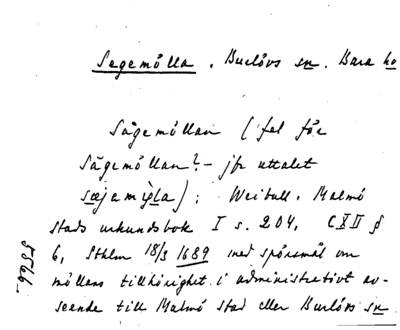 Segemölla. Burlövs sn. Bara hd
Sägemöllan (fel för
Sågemöllan? - jfr uttalet
sæjemỳla); Weibull. Malmö
stads urkundsbok I s. 204, C XII §
6, Sthlm 18/3 1689 med spörsmål om
möllans tillhörighet i administrativt av-
seende till Malmö stad eller Burlövs sn.